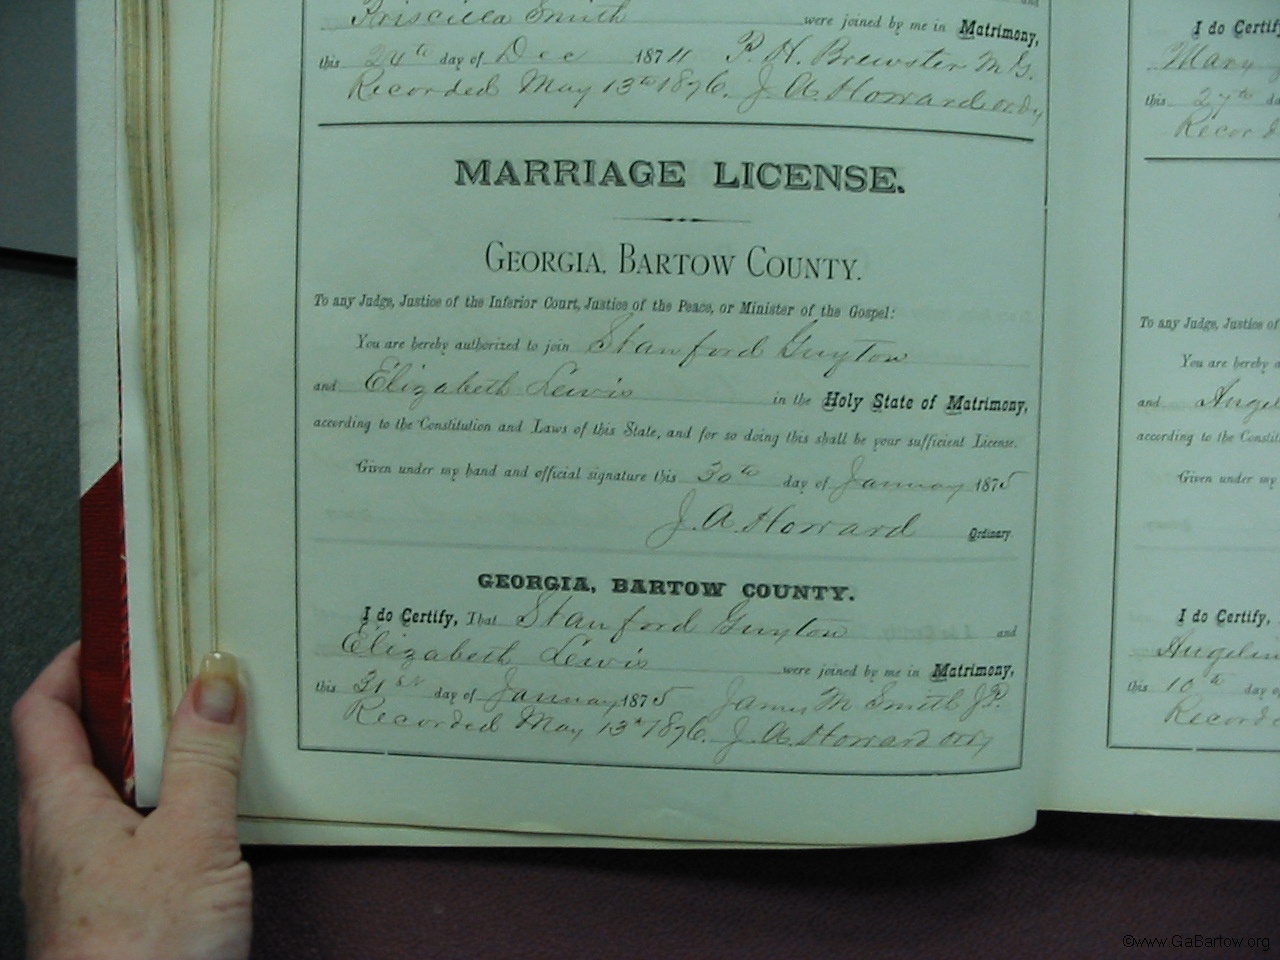 Priscilla Smith were joined by me in Matrimony,
this 24th day of Dec 1874 P. H. Brewster M.G.
Recorded May 13th 1876. J. A. Howard ordy
MARRIAGE LICENSE.
GEORGIA, BARTOW COUNTY.
To any Judge, Justice of the Inferior Court, Justice of the Peace, or Minister of the Gospel:
You are hereby authorized to join Stanford Guyton
and Elizabeth Lewis in the Holy State of Matrimony,
according to the Constitution and Laws of this State, and for so doing this shall be your sufficient License.
Given under my hand and official signature this 30th day of January 1875
J. A. Howard Ordinary.
GEORGIA, BARTOW COUNTY.
I do Certify, That Stanford Guyton and
Elizabeth Lewis were joined by me in Matrimony,
this 31st day of January 1875 James M Smith J.P.
Recorded May 13th 1876. J. A. Howard ordy
I do Certify
Mary
this 27th da
Record
To any Judge, Justice of
You are hereby a
and Angel
according to the Constit
Given under my
I do Certify,
Angelin
this 10th day o
Record
©www.GaBartow.org